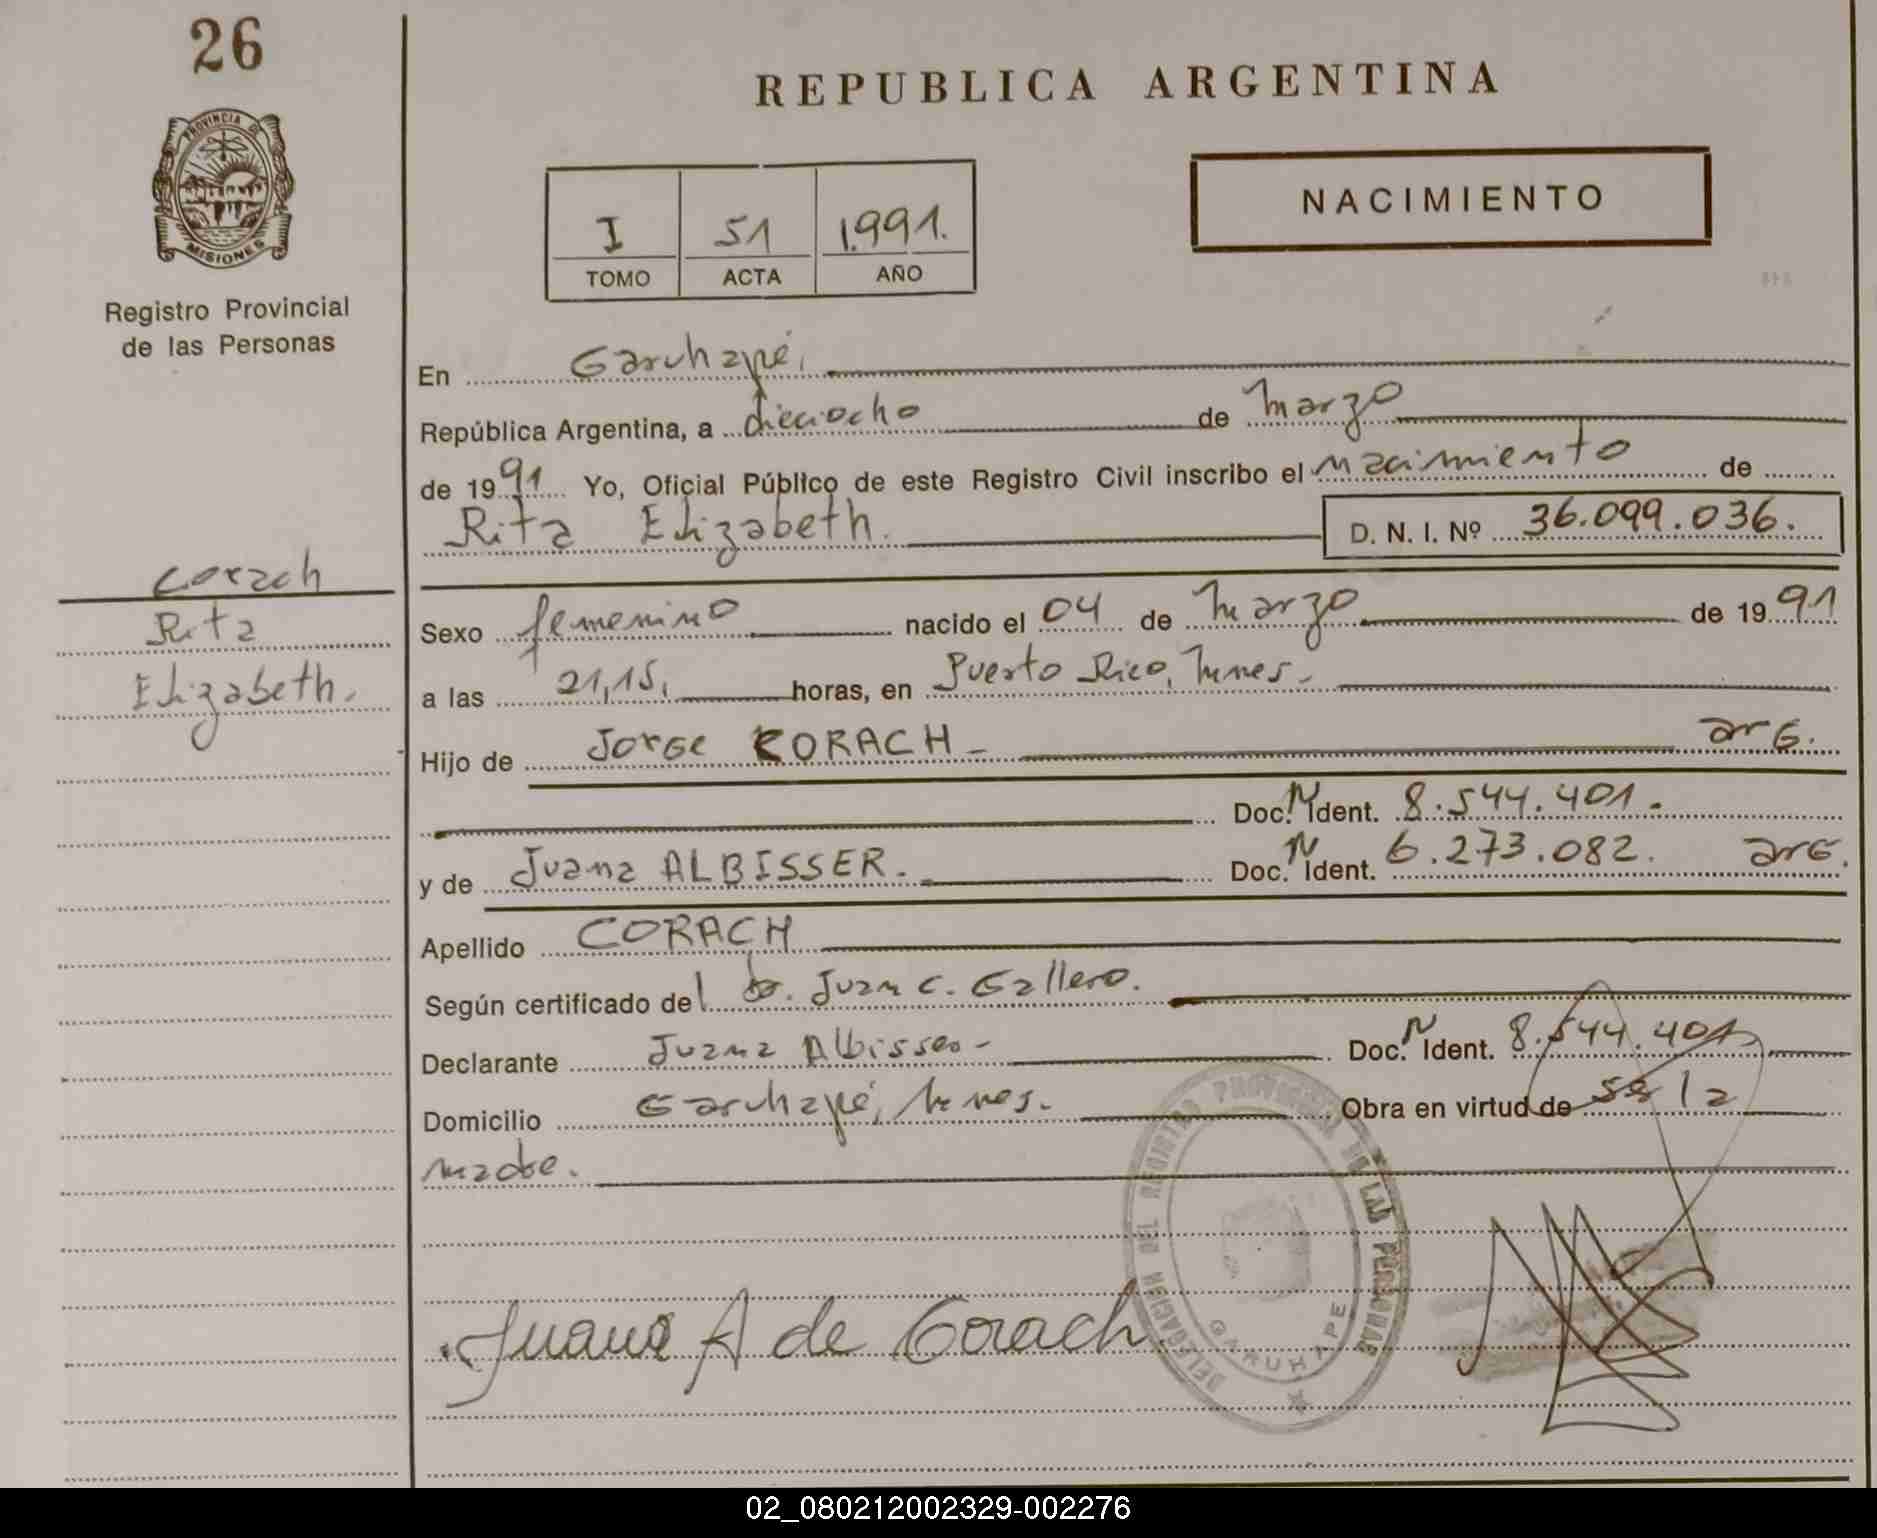 26
PROVINCIA DE
MISIONES
Registro Provincial
de las Personas
Corach
Rita
Elizabeth.
REPUBLICA ARGENTINA
I 51 1.991.
TOMO ACTA AÑO
NACIMIENTO
En Garuhapé,
República Argentina, a dieciocho de marzo
de 1991 Yo, Oficial Público de este Registro Civil inscribo el nacimiento de
Rita Elizabeth. D. N. I. Nº 36.099.036.
Sexo femenino nacido el 04 de marzo de 1991
a las 21,15, horas, en Puerto Rico, Mnes.-
Hijo de Jorge CORACH - arg.
Doc. N Ident. 8.544.401.
y de Juana ALBISSER. Doc. N Ident. 6.273.082. arg.
Apellido CORACH
Según certificado del Dr. Juan C. Gallero.
Declarante Juana Albisser- Doc. N Ident. 8.544.401
Domicilio Garuhapé, Mnes. Obra en virtud de ser la
madre.
DELEGACION DEL REGISTRO PROVINCIAL DE LAS PERSONAS
GARUHAPE
Juana A de Corach.
02_080212002329-002276